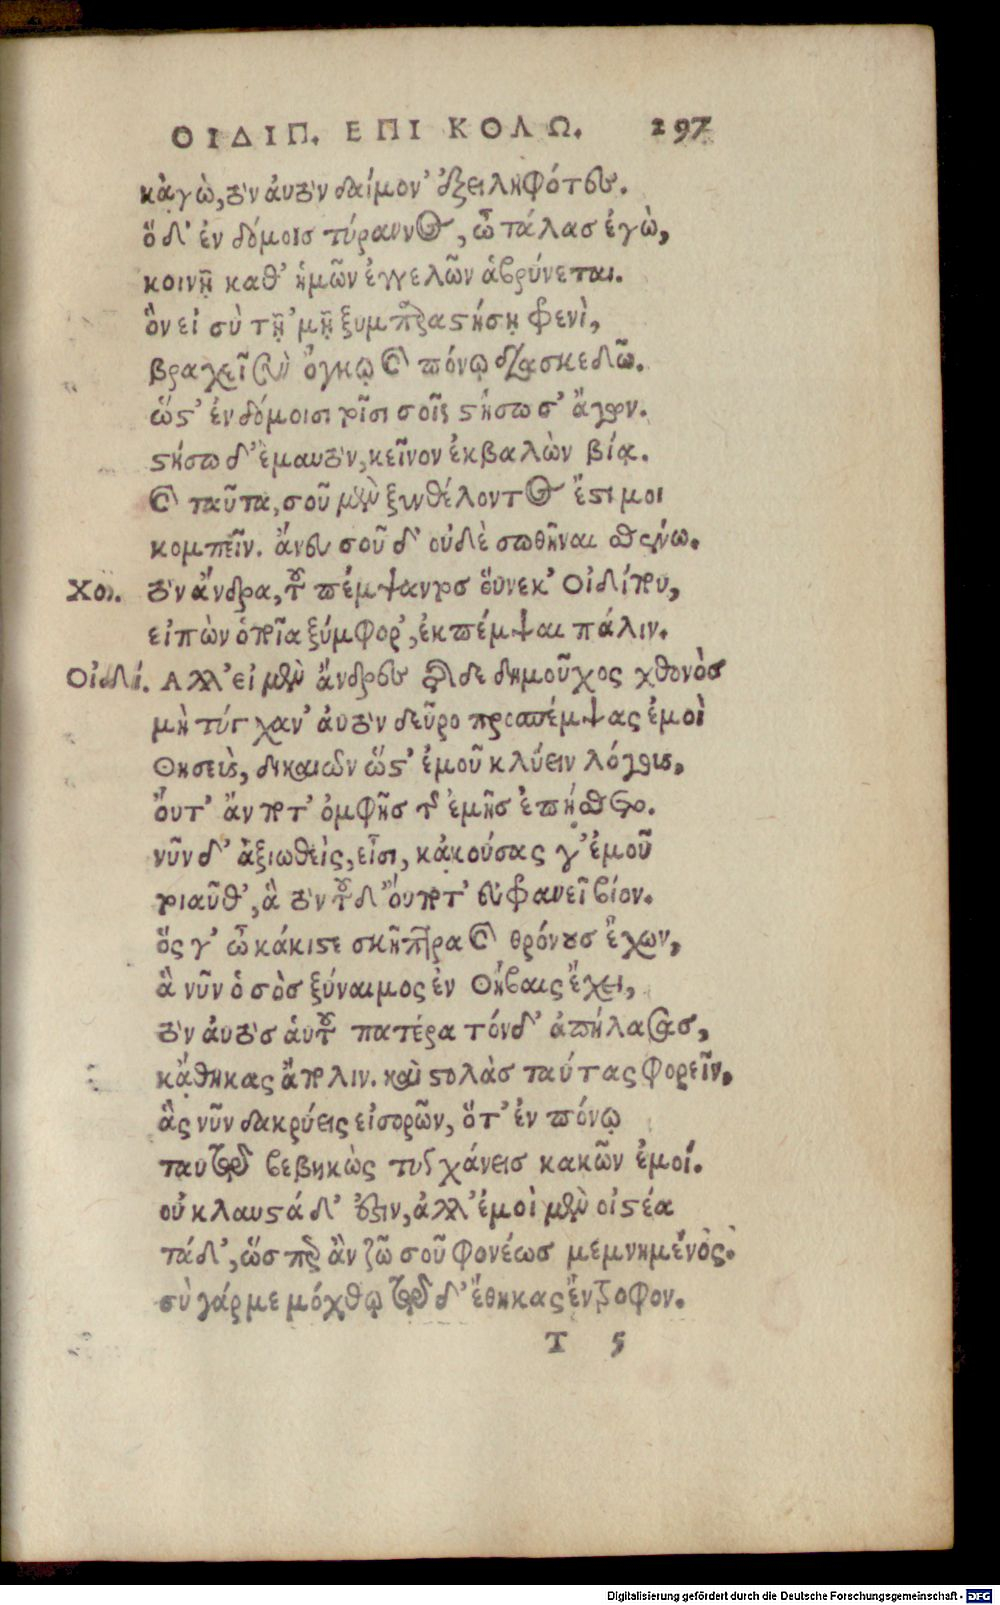 ΟΙΔΙΠ. ΕΠΙ ΚΟΛΩ. 297
κἀγὼ, τὸν αὐτὸν δαίμον' ἐξειληφότες.
ὁ δ' ἐν δόμοις τύραννος, ὦ τάλας ἐγὼ,
κοινῇ καθ' ἡμῶν ἐγγελῶν ἁβρύνεται.
ὃν εἰ σὺ τῇ 'μῇ ξυμπαραστήσῃ φρενὶ,
βραχεῖ σὺν ὄγκῳ καὶ πόνῳ διασκεδῶ.
ὥστ' ἐν δόμοισι τοῖσι σοῖς στήσω σ' ἄγων.
στήσω δ' ἐμαυτὸν, κεῖνον ἐκβαλὼν βίᾳ.
καὶ ταῦτα, σοῦ μὲν ξυνθέλοντος ἔστι μοι
κομπεῖν. ἄνευ σοῦ δ' οὐδὲ σωθῆναι σθένω.
Χο. τὸν ἄνδρα, τοῦ πέμψαντος οὕνεκ' Οἰδίπου,
εἰπὼν ὁποῖα ξύμφορ', ἐκπέμψαι πάλιν.
Οἰδί. Αλλ' εἰ μὲν ἄνδρες τῆσδε δημοῦχος χθονὸς
μὴ τύγχαν' αὐτὸν δεῦρο προσπέμψας ἐμοὶ
Θησεὺς, δικαιῶν ὥστ' ἐμοῦ κλύειν λόγους,
οὔτ' ἄν ποτ' ὀμφῆς τῆς ἐμῆς ἐπῄσθετο.
νῦν δ' ἀξιωθεὶς, εἶσι, κᾀκούσας γ' ἐμοῦ
τοιαῦθ', ἃ τὸν τοῦδ' οὔποτ' εὐφρανεῖ βίον.
ὅς γ' ὦ κάκιστε σκῆπτρα καὶ θρόνους ἔχων,
ἃ νῦν ὁ σὸς ξύναιμος ἐν Θήβαις ἔχει,
τὸν αὐτὸς αὑτοῦ πατέρα τόνδ' ἀπήλασας,
κᾄθηκας ἄπολιν. καὶ στολὰς ταύτας φορεῖν,
ἃς νῦν δακρύεις εἰσορῶν, ὅτ' ἐν πόνῳ
ταυτῷ βεβηκὼς τυγχάνεις κακῶν ἐμοί.
οὐ κλαυστὰ δ' ἐστὶν, ἀλλ' ἐμοὶ μὲν οἰστέα
τάδ', ὥσπερ ἂν ζῶ σοῦ φονέως μεμνημένος.
σὺ γάρ με μόχθῳ τῷδ' ἔθηκας ἔντροφον.
T 5
Digitalisierung gefördert durch die Deutsche Forschungsgemeinschaft - DFG